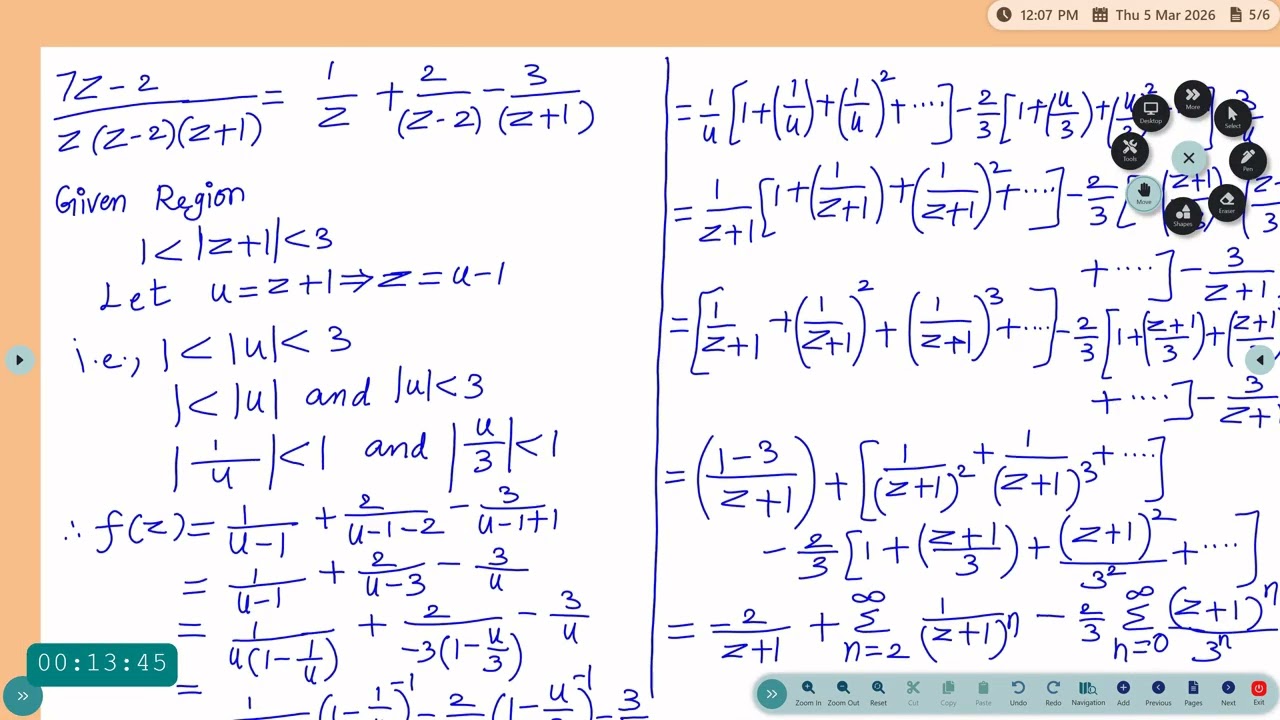 12:07 PM Thu 5 Mar 2026 5/6
(7z-2)/(z(z-2)(z+1)) = 1/z + 2/(z-2) - 3/(z+1)
Given Region
1<|z+1|<3
Let u=z+1⇒z=u-1
i.e., 1<|u|<3
1<|u| and |u|<3
|1/u|<1 and |u/3|<1
∴ f(z)= 1/(u-1) + 2/(u-1-2) - 3/(u-1+1)
= 1/(u-1) + 2/(u-3) - 3/u
= 1/(u(1-1/u)) + 2/(-3(1-u/3)) - 3/u
=
= 1/u [1+(1/u)+(1/u)²+....] - 2/3 [1+(u/3)+
= 1/(z+1) [1+(1/(z+1))+(1/(z+1))²+....] - 2/3 [
+ ....] - 3/(z+1)
= [1/(z+1) + (1/(z+1))² + (1/(z+1))³ +....] - 2/3 [1+((z+1)/3)+
+ ....] - 3/(z+1
= ((1-3)/(z+1)) + [1/(z+1)² + 1/(z+1)³ + ....]
- 2/3 [1 + ((z+1)/3) + (z+1)²/3² + ....]
= -2/(z+1) + ∞Σn=2 1/(z+1)ⁿ - 2/3 ∞Σn=0 (z+1)ⁿ/3ⁿ
More
Desktop
Select
Tools
Pen
Move
Eraser
Shapes
00:13:45
Zoom In Zoom Out Reset Cut Copy Paste Undo Redo Navigation Add Previous Pages Next Exit